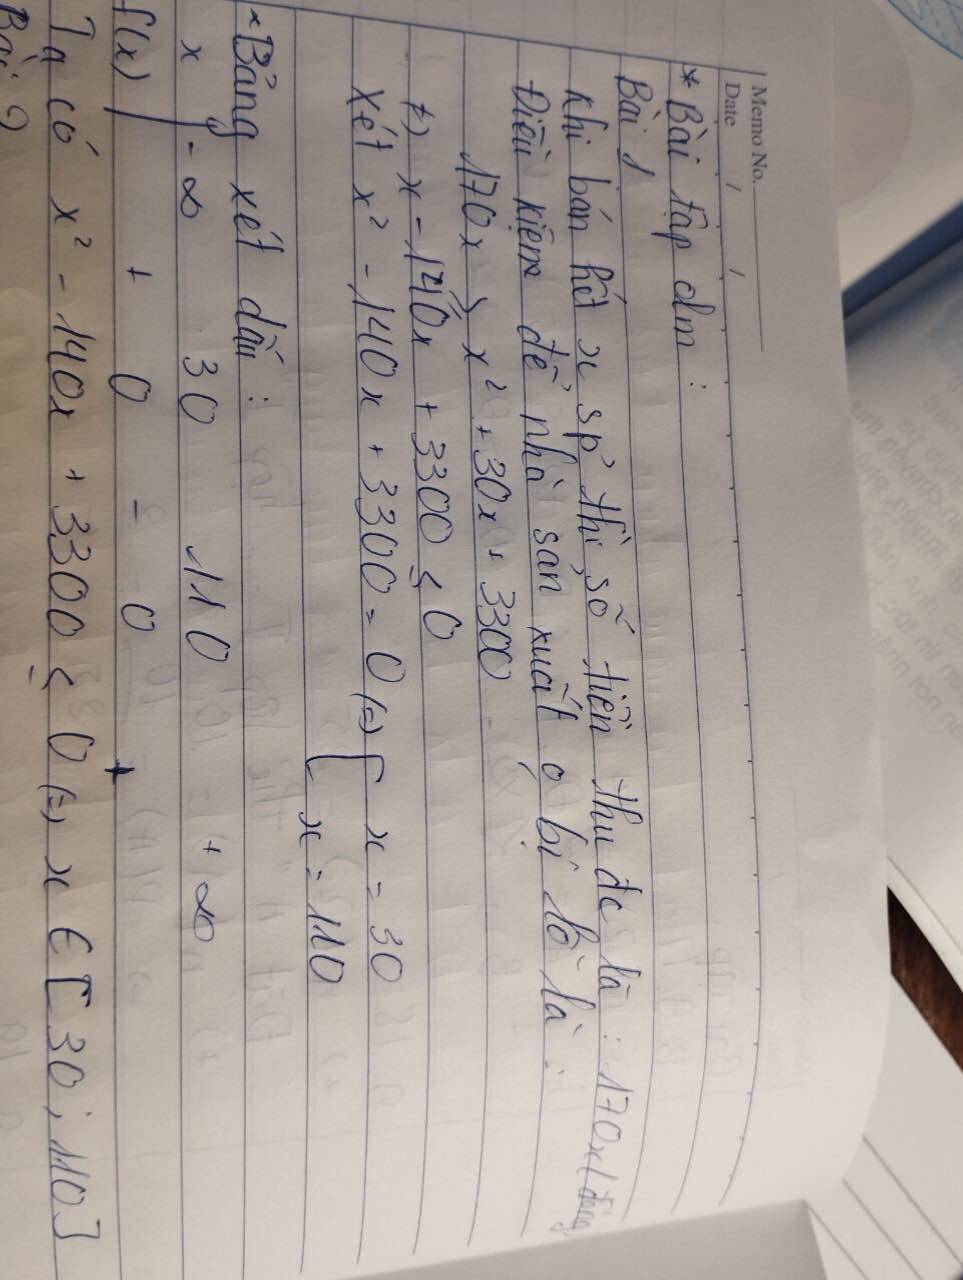 Memo No.
Date / /
* Bài tập dm :
Bài 1
Khi bán hết x sp' thì số tiền thu đc là : 170x (đồng
Điều kiện để nhà sản xuất o bị lỗ là :
170x ≥ x² + 30x + 3300
x - 140x + 3300 ≤ 0
Xét x² - 140x + 3300 = 0 (=) [ x = 30
x = 110
Bảng xét dấu :
x -∞ 30 110 +∞
f(x) + 0 - 0 +
Ta có x² - 140x + 3300 ≤ 0 (=) x ∈ [30 ; 110]
Bài 2